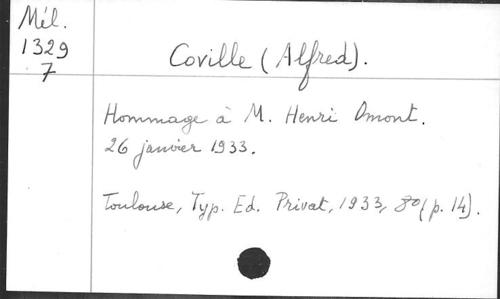 Mél.
1329
7
Coville (Alfred).
Hommage à M. Henri Omont.
26 janvier 1933.
Toulouse, Typ. Ed. Privat, 1933, 8º (p. 14).